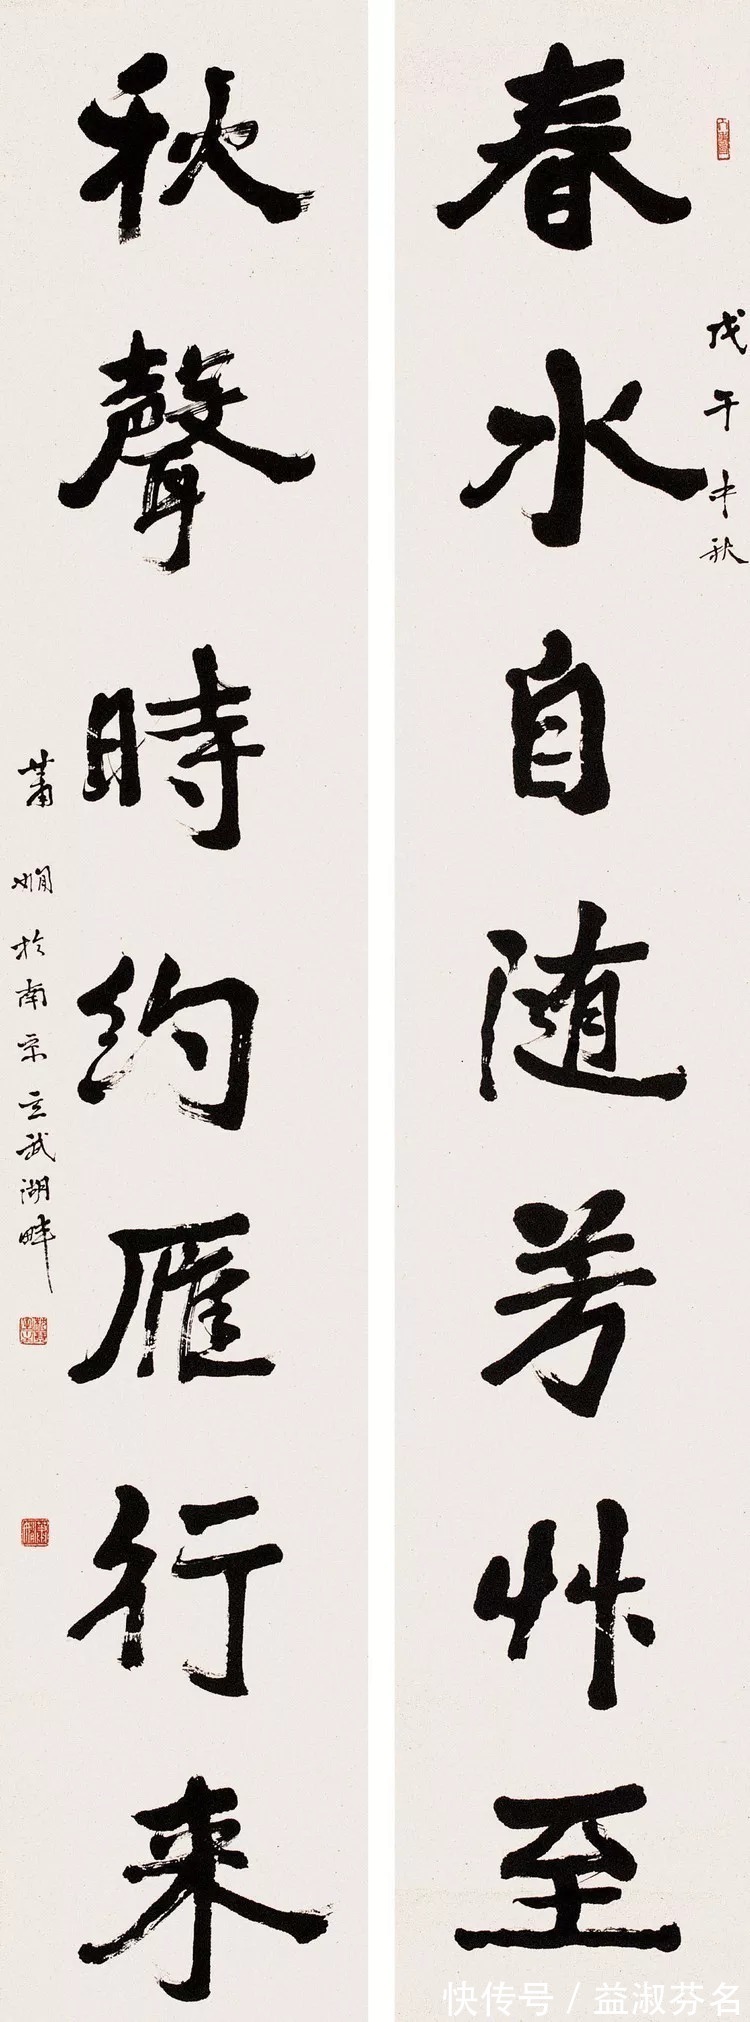 春水自随芳艸至
戊午中秋
秋聲時約雁行来
蕭嫻於南京玄武湖畔
快传号/益淑芬名